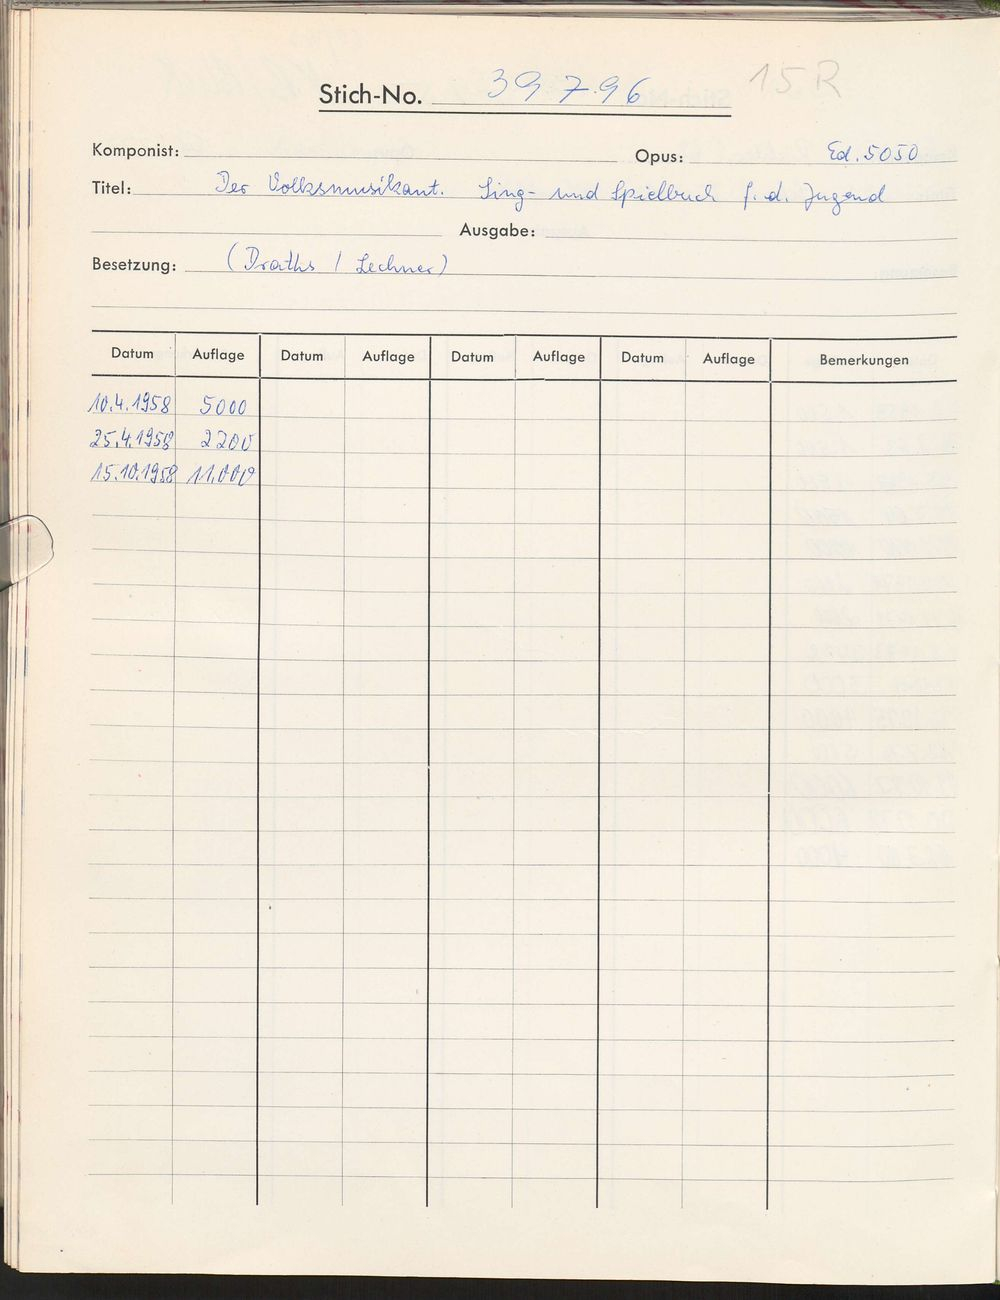 Stich-No. 39796 15R
Komponist: Opus: Ed. 5050
Titel: Der Volksmusikant. Sing- und Spielbuch f. d. Jugend
Ausgabe:
Besetzung: (Draths / Lechner)
Datum Auflage Datum Auflage Datum Auflage Datum Auflage Bemerkungen
10.4.1958 5000
25.4.1958 2200
15.10.1958 11.000